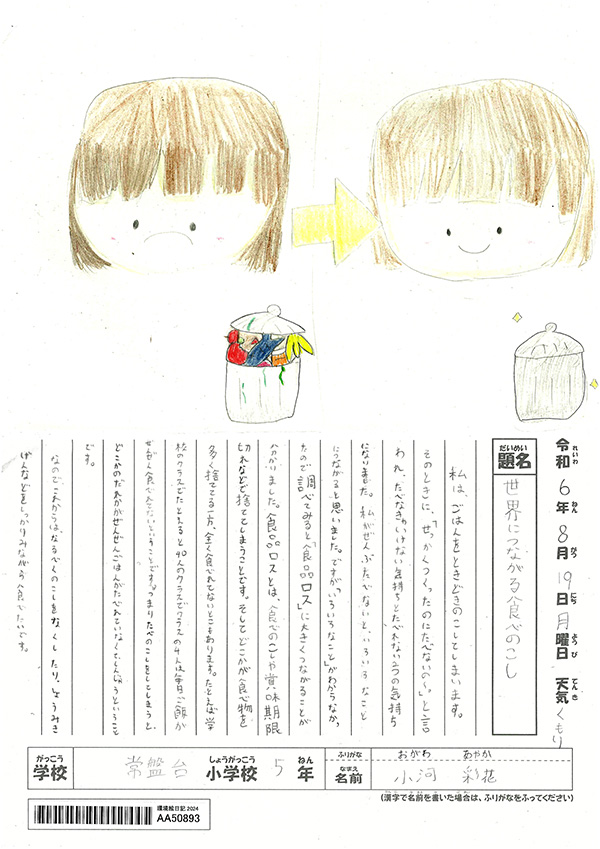 令和6年8月19日月曜日 天気くもり
れいわ ねん がつ にち ようび てんき
題名 世界につながる食べのこし
だいめい
私は、ごはんをときどきのこしてしまいます。
そのときに、「せっかくつくったのにたべないの〜。」と言
われ、たべなきゃいけない気持ちとたべれない2つの気持ち
になりました。私がぜんぶたべないと、いろいろなこと
につながると思いました。ですが、「いろいろなこと」がわからなかっ
たので調べてみると「食品ロス」に大きくつながることが
分かりました。食品ロスとは、食べのこしや賞味期限
切れなどで捨ててしまうことです。そしてどこかが食べ物を
多く捨ててる一方、全く食べれてないとこもあります。たとえば学
校のクラスでたとえると40人のクラスでクラスの4人は毎日ご飯が
ぜんぜん食べれてないということです。つまりたべのこしをしてしまうと、
どこかのだれかがぜんぜんごはんがたべれていなくてしんじゃうということ
です。
なので、これからはなるべくのこしをなくしたり、しょうみき
げんなどをしっかりみながら食べたいです。
がっこう
学校 常盤台 小学校 5年
しょうがっこう ねん
ふりがな おがわ あやか
なまえ
名前 小河 彩花
(漢字で名前を書いた場合は、ふりがなをふってください)
環境絵日記2024
AA50893